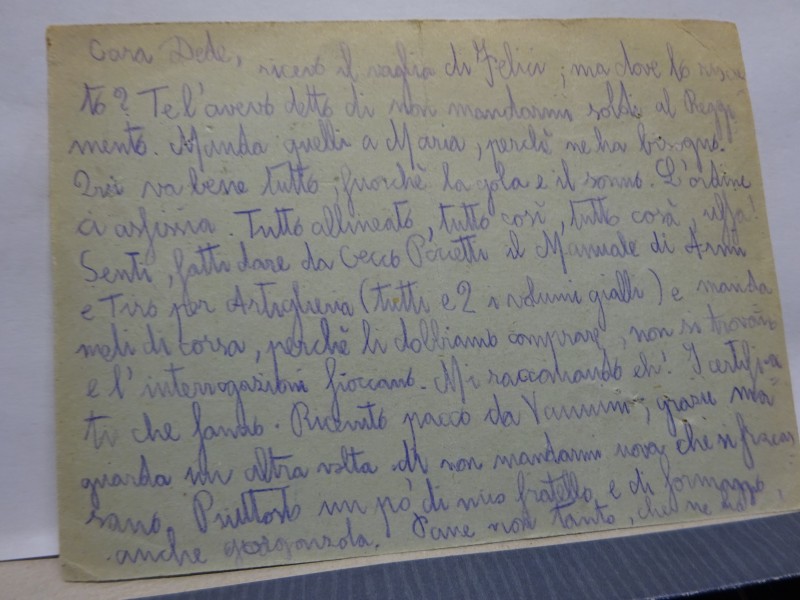 Cara Dede, ricevo il vaglia di Felici, ma dove lo riscuo
to? Te l'avevo detto di non mandarmi soldi al Reggi
mento. Manda quelli a Maria, perchè ne ha bisogno.
Qui va bene tutto fuorchè la gola e il sonno. L'ordine
ci asfissia. Tutto allineato, tutto così, tutto cosà, uffa!
Senti, fatti dare da Cecco il Manuale di Armi
e Tiro per Artiglieria (tutti e 2 i volumi gialli) e manda
meli di corsa, perchè li dobbiamo comprare, non si trovano
e l'interrogazioni fioccano. Mi raccomando eh! I certifica
ti che fanno. Ricevuto pacco da Vannini, grazie ma
guarda un altra volta di non mandarmi uova che si fracas
sano. Piuttosto un pò di mio fratello, e di formaggio,
anche gorgonzola. Pane non tanto, che ne ho